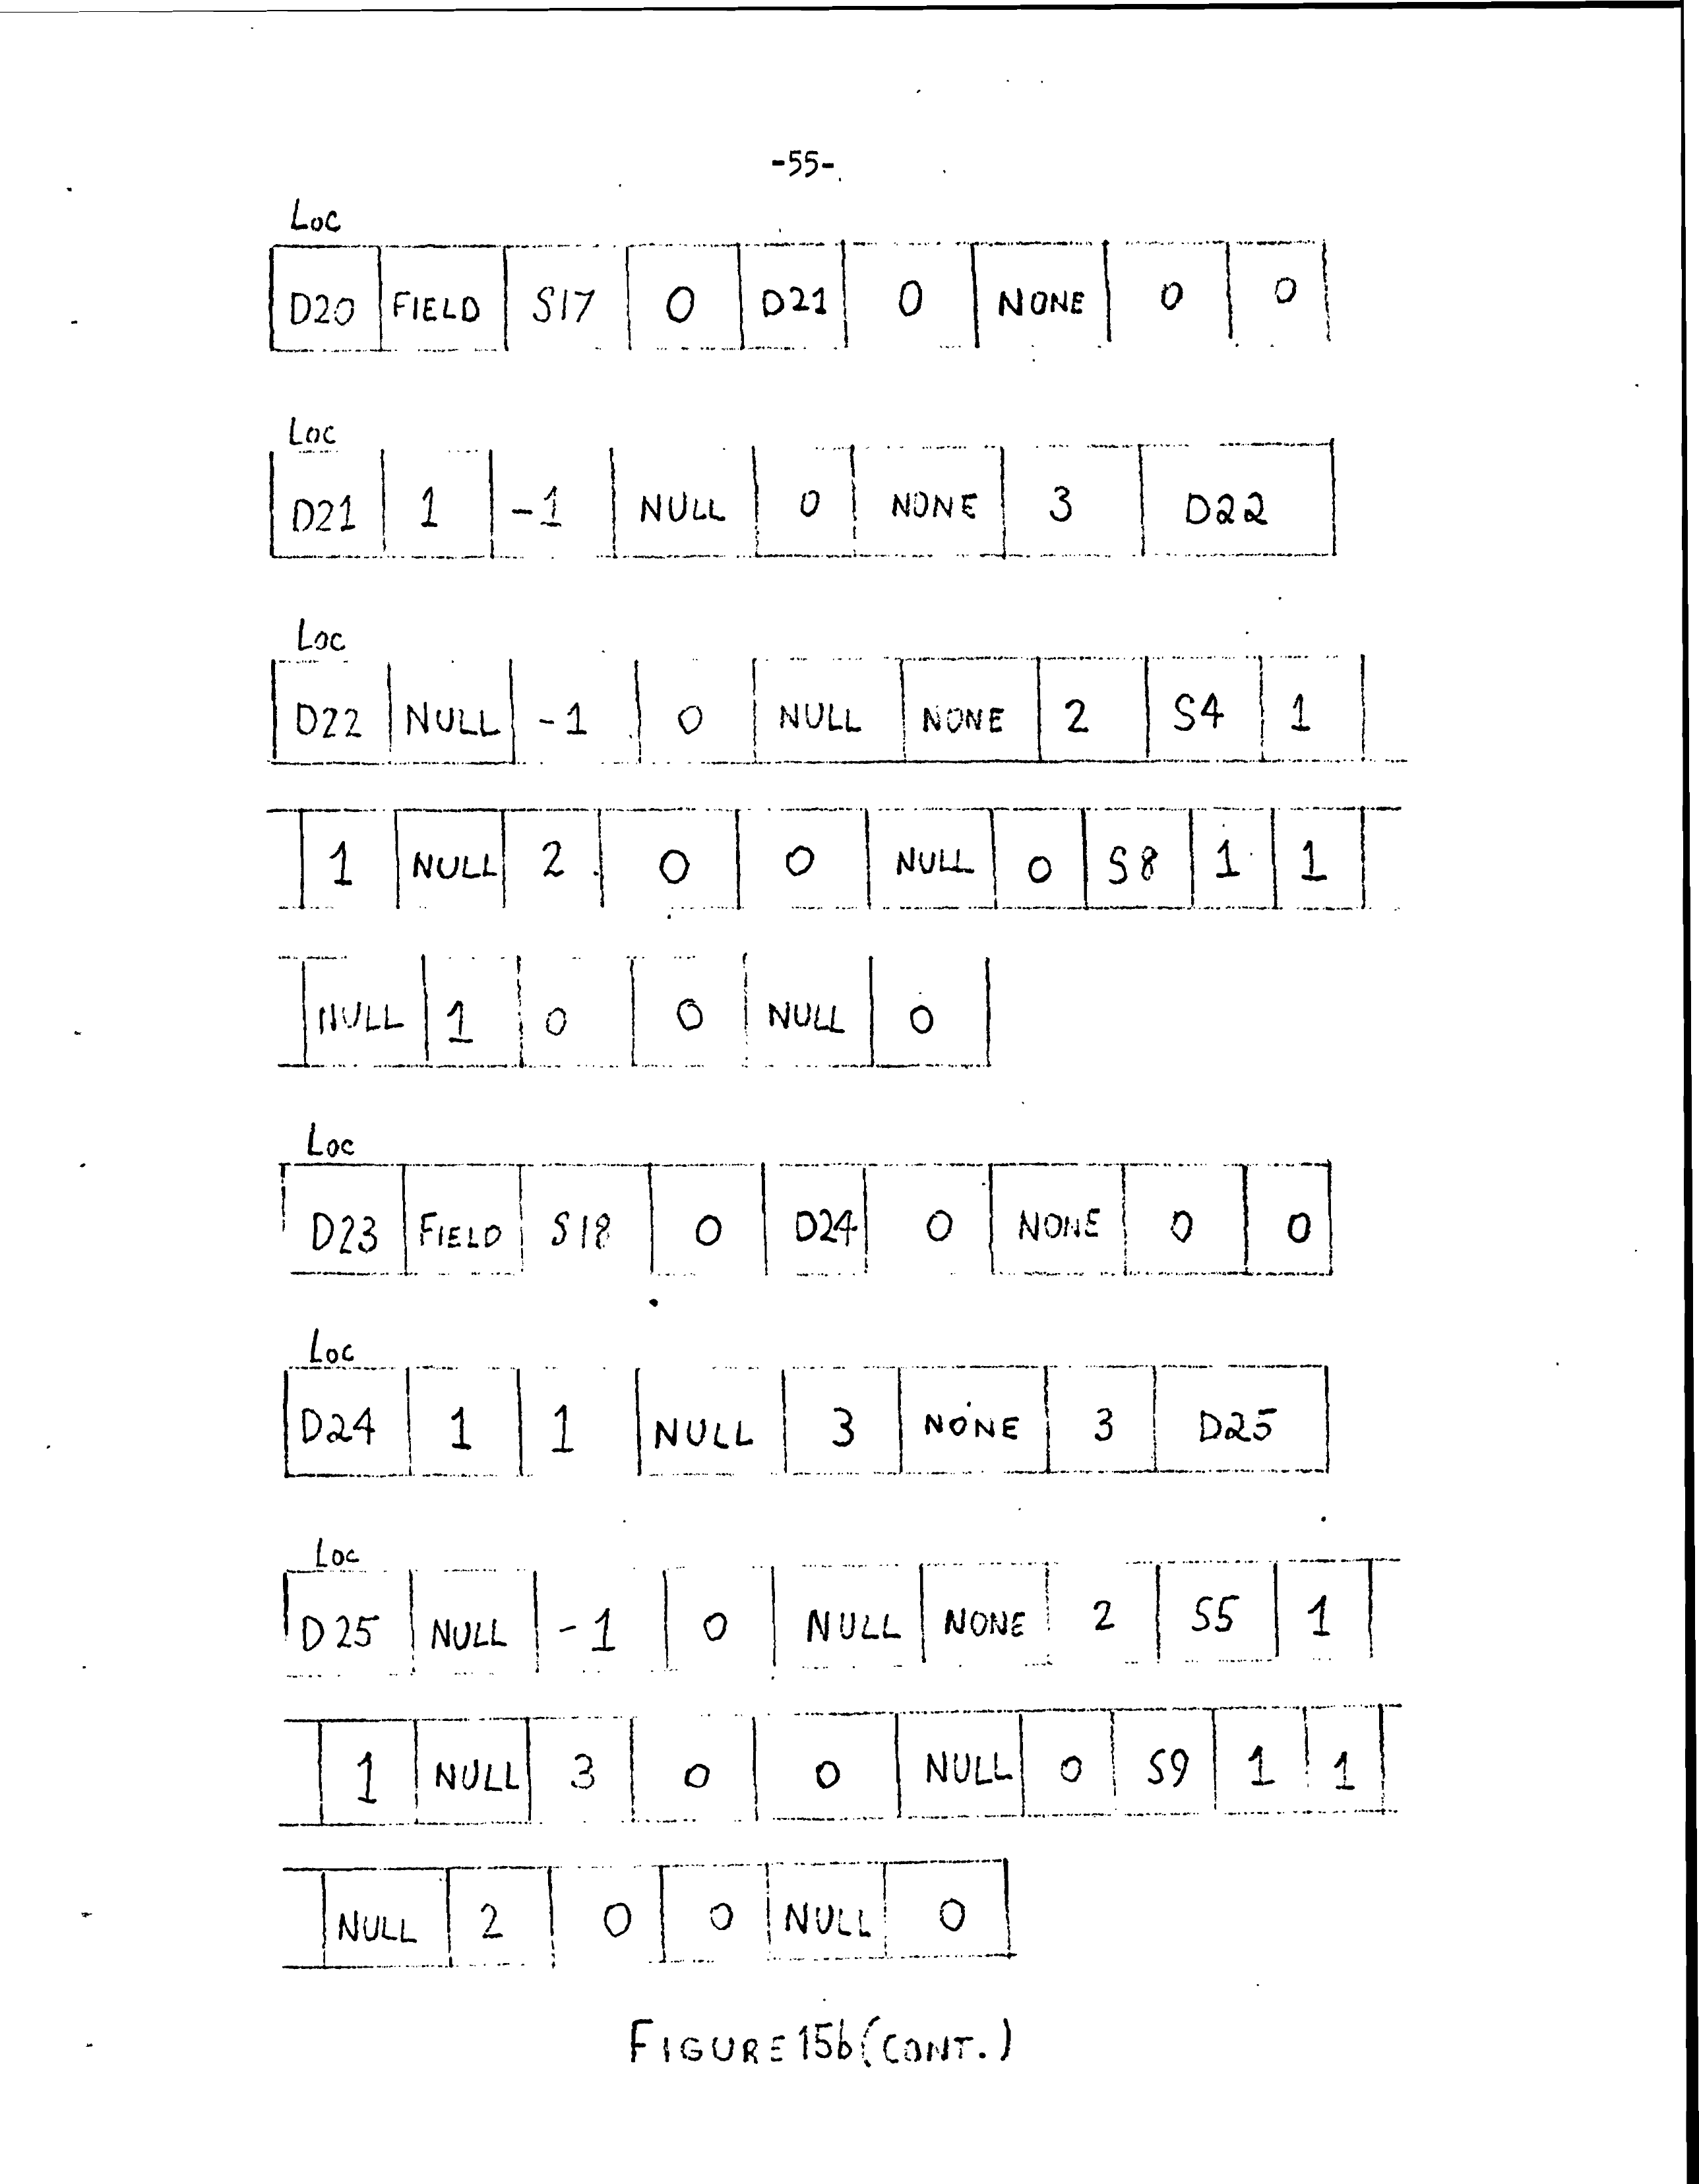 -55-
Loc
D20 FIELD S17 0 D21 0 NONE 0 0
Loc
D21 1 -1 NULL 0 NONE 3 D22
Loc
D22 NULL -1 0 NULL NONE 2 S4 1
1 NULL 2 0 0 NULL 0 S8 1 1
NULL 1 0 0 NULL 0
Loc
D23 FIELD S18 0 D24 0 NONE 0 0
Loc
D24 1 1 NULL 3 NONE 3 D25
Loc
D25 NULL -1 0 NULL NONE 2 S5 1
1 NULL 3 0 0 NULL 0 S9 1 1
NULL 2 0 0 NULL 0
FIGURE 15b (CONT.)